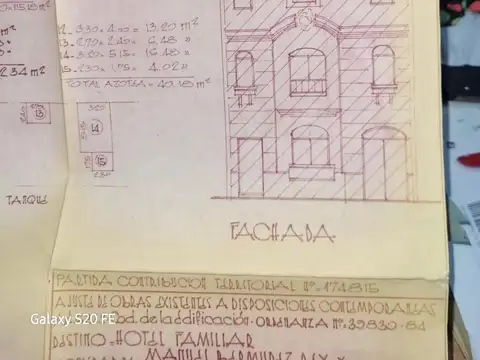 12. 3.30 × 4.00 = 13.20 m²
13. 2.70 × 2.40 = 6.48 »
14. 3.20 × 5.15 = 16.48 »
15. 2.30 × 1.75 = 4.02 »
TOTAL AZOTEA = 40.18 m²
2.34 m²
13
14
15
TANQUE
FACHADA
PARTIDA CONTRIBUCION TERRITORIAL nº. 174815
AJUSTE DE OBRAS EXISTENTES A DISPOSICIONES CONTEMPORANEAS
Cod. de la Edificación - ORDENANZA nº. 39830-84
DESTINO - HOTEL FAMILIAR
MANUEL BERMUDEZ REY
Galaxy S20 FE